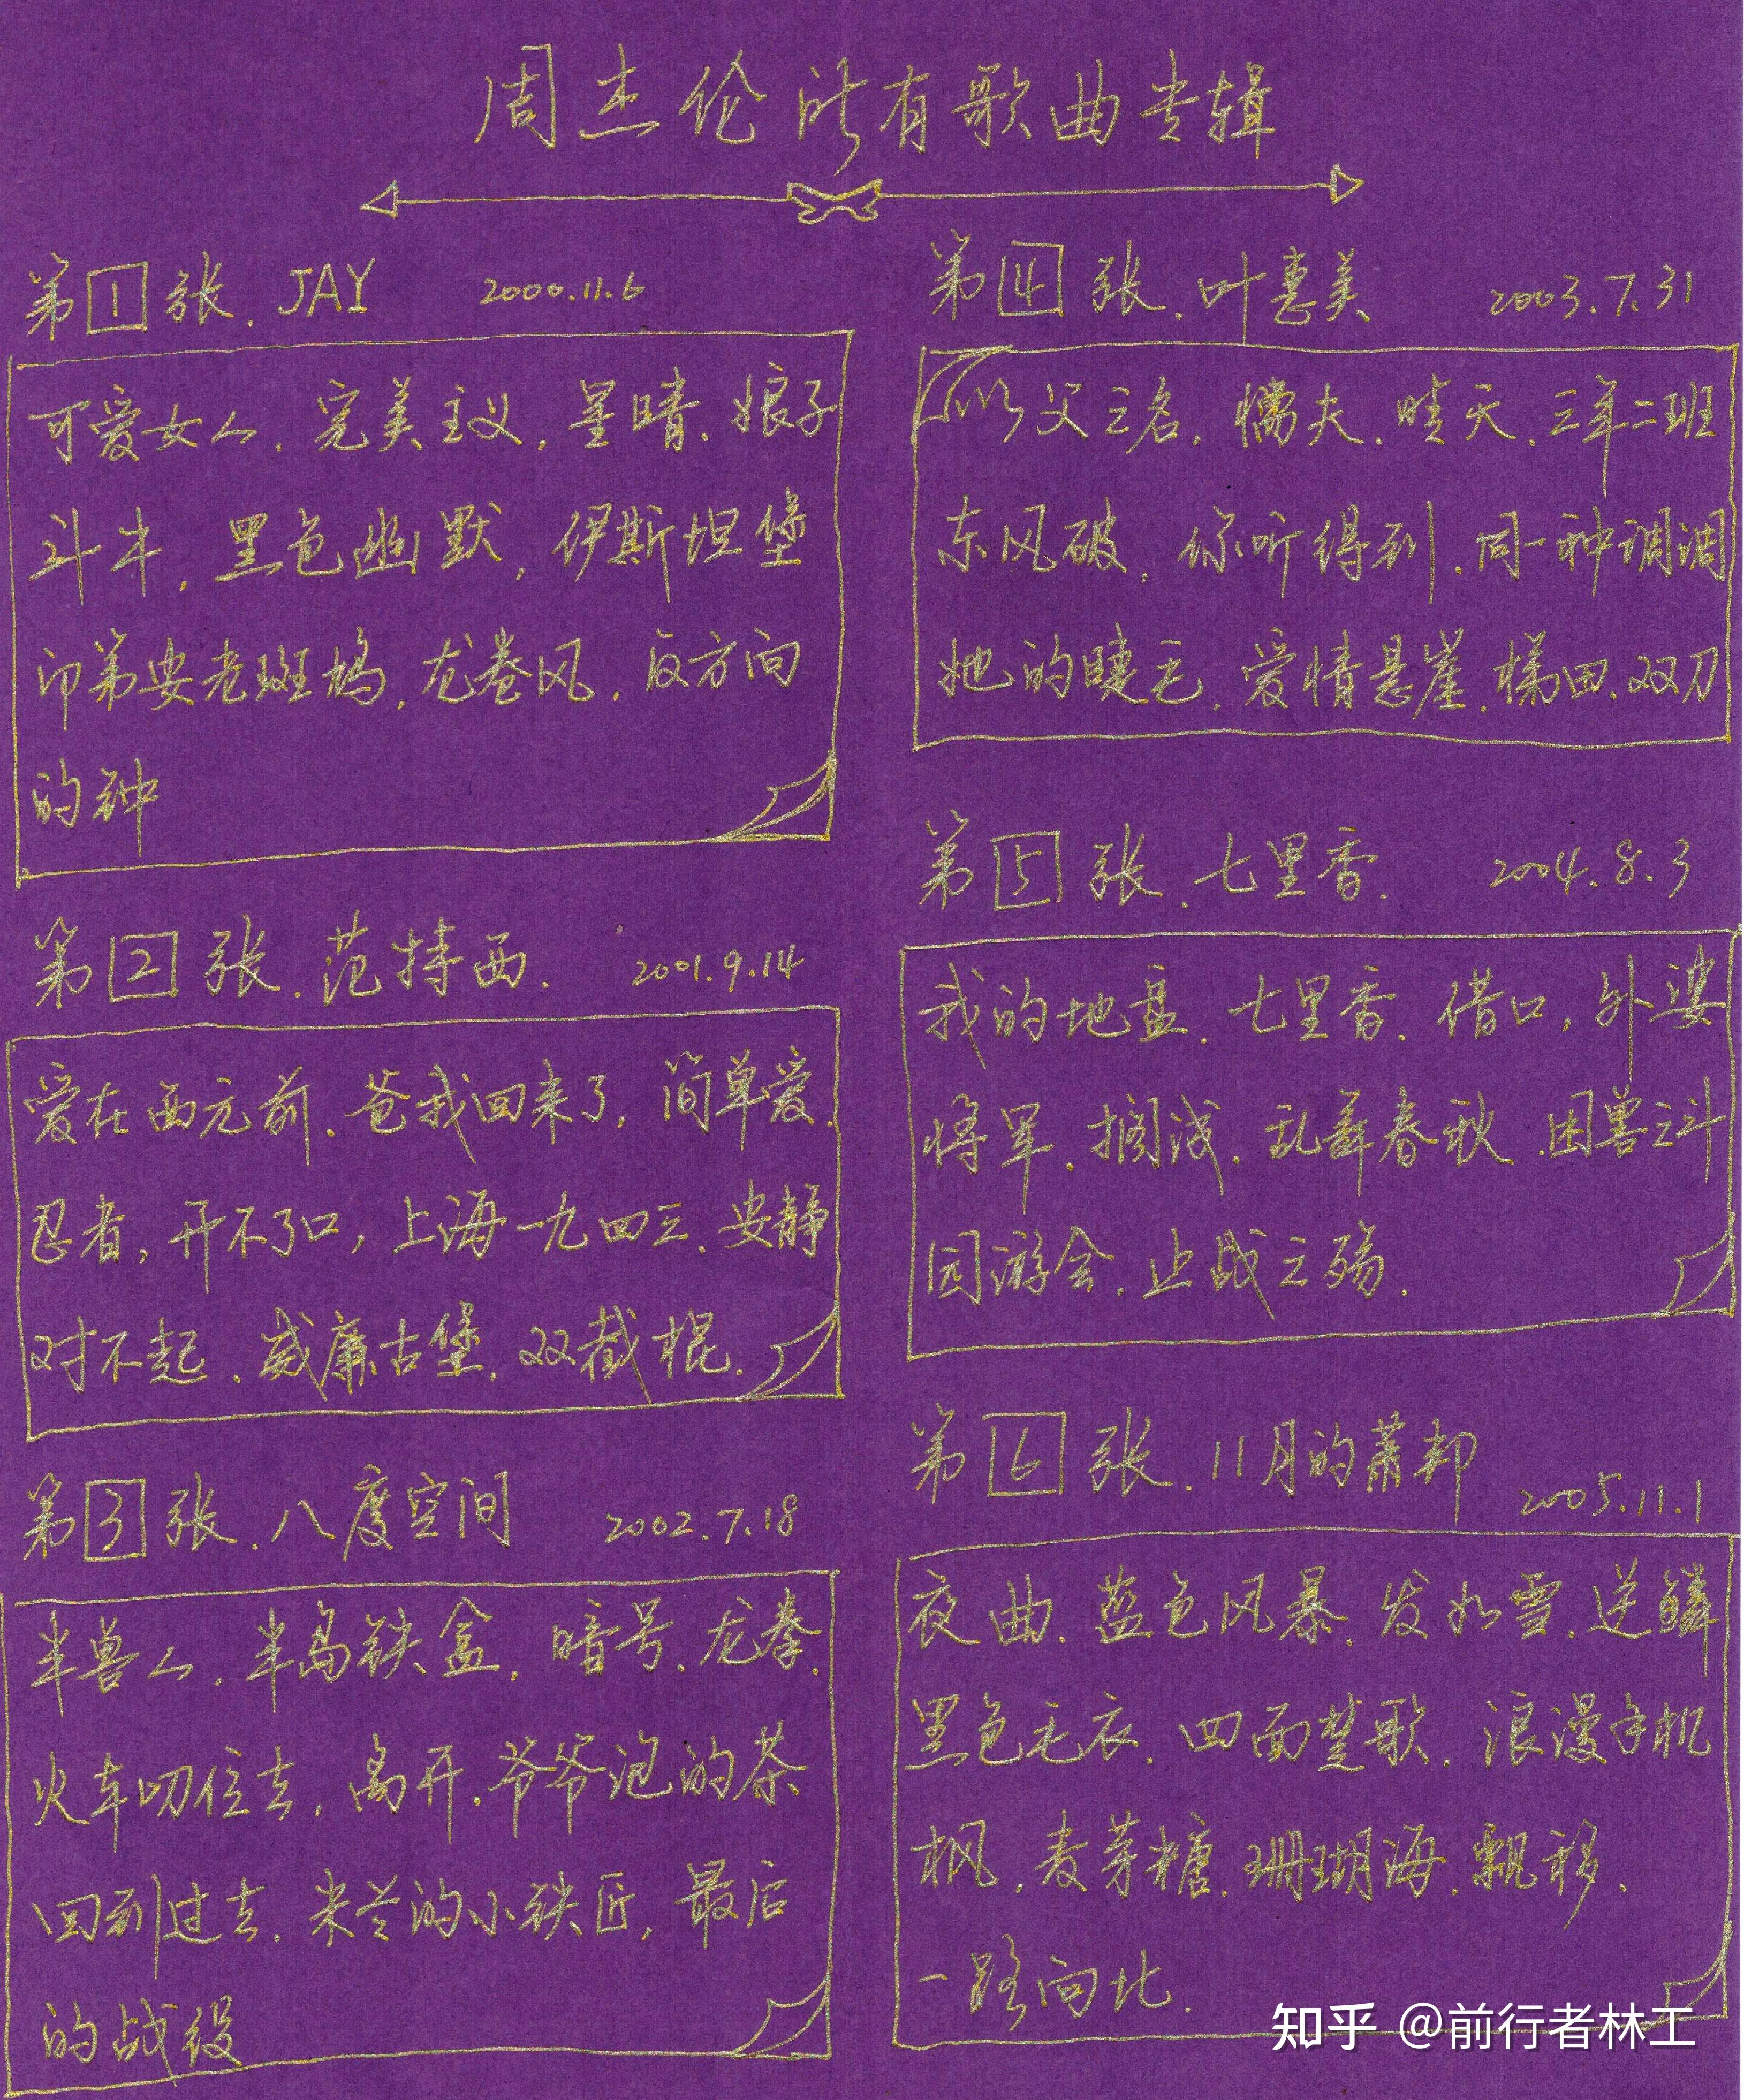 周杰伦所有歌曲专辑
第1张.JAY 2000.11.6
可爱女人.完美主义,星晴.娘子
斗牛,黑色幽默,伊斯坦堡
印第安老斑鸠.龙卷风,反方向
的钟
第2张.范特西. 2001.9.14
爱在西元前.爸我回来了,简单爱.
忍者,开不了口,上海一九四三.安静
对不起.威廉古堡.双截棍.
第3张.八度空间 2002.7.18
半兽人,半岛铁盒,暗号.龙拳.
火车叨位去,离开.爷爷泡的茶
回到过去.米兰的小铁匠,最后
的战役
第4张.叶惠美 2003.7.31
以父之名,懦夫.晴天.三年二班
东风破,你听得到.同一种调调
她的睫毛,爱情悬崖.梯田.双刀
第5张.七里香. 2004.8.3
我的地盘.七里香.借口,外婆
将军.搁浅.乱舞春秋.困兽之斗
园游会.止战之殇.
第6张.11月的萧邦
2005.11.1
夜曲.蓝色风暴.发如雪.逆鳞
黑色毛衣.四面楚歌.浪漫手机
枫.麦芽糖.珊瑚海.飘移.
一路向北.
知乎 @前行者林工